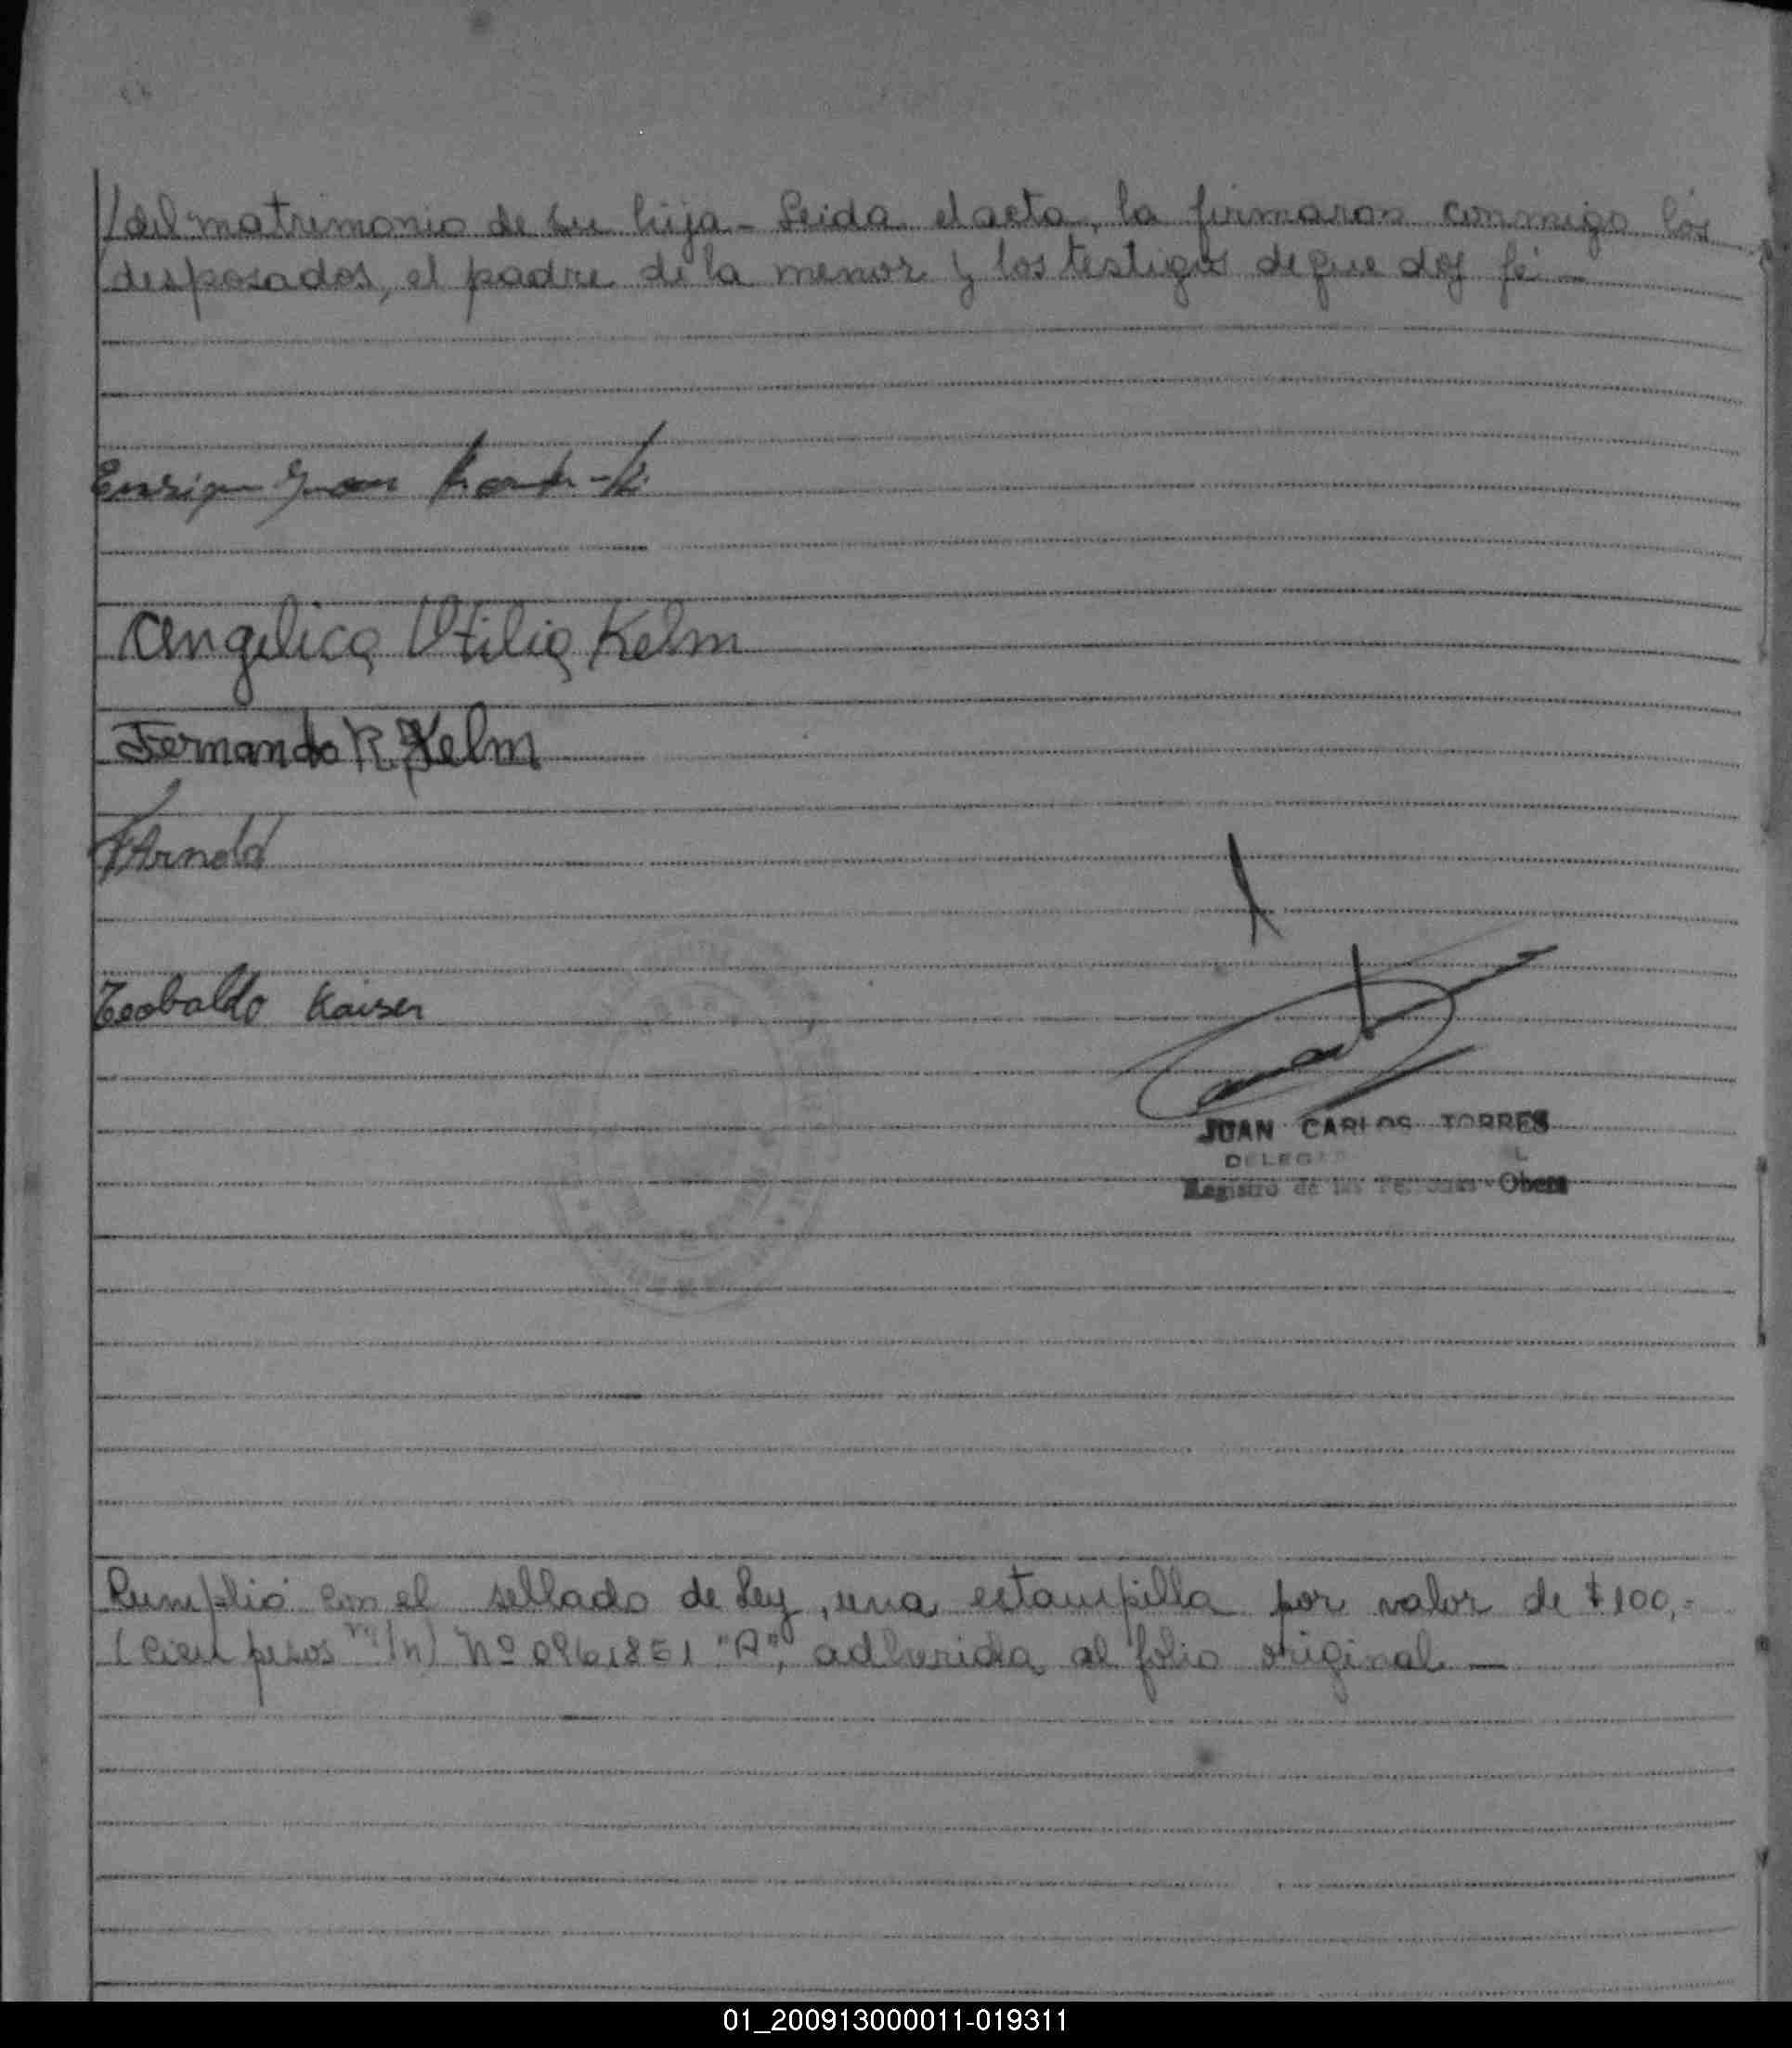 del matrimonio de su hija - Leida el acta, la firmaron conmigo los
desposados, el padre de la menor y los testigos de que doy fé -
Angelica Otilia Kelm
Fernando R. Kelm
Arnold
Teobaldo Kaiser
JUAN CARLOS TORRES
Registro de las Personas - Obera
Cumplió con el sellado de Ley, una estampilla por valor de $100,-
(Cien pesos m/n) Nº "A", adherida al folio original. —
01_200913000011-019311